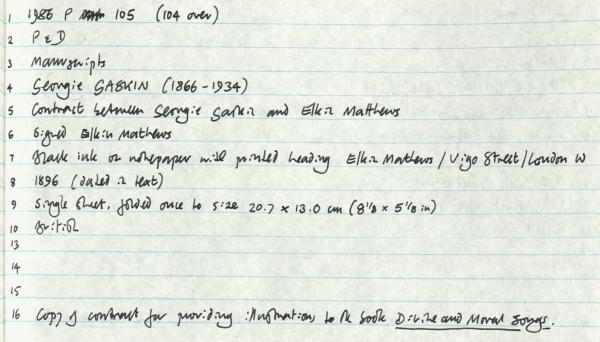 1 1986 P 105 (104 over)
2 P & D
3 Manuscripts
4 Georgie GASKIN (1866-1934)
5 Contract between Georgie Gaskin and Elkin Matthews
6 Signed Elkin Mathews
7 Black ink on notepaper with printed heading Elkin Mathews / Vigo Street / London W
8 1896 (dated in text)
9 Single sheet, folded once to size 20.7 x 13.0 cm (8 1/8 x 5 1/8 in)
10 British
13
14
15
16 Copy of contract for providing illustrations to the book Divine and Moral Songs.